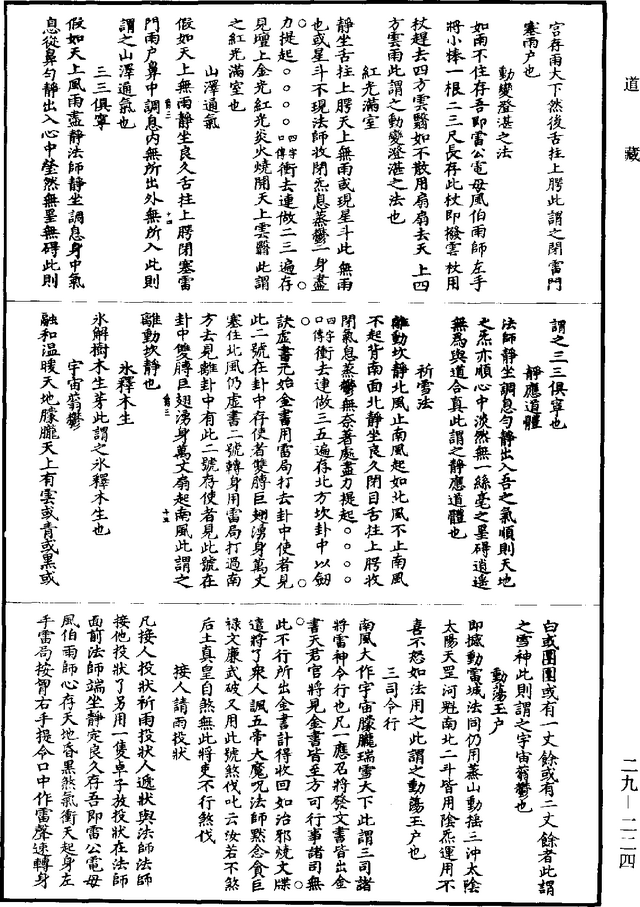 道藏
宮存雨大下然後舌拄上腭此謂之閉雷門
塞雨户也
動變澄湛之法
如雨不住存吾即雷公電母風伯雨師左手
將小棒一根二三尺長存此杖即撥雲杖用
杖趕去四方雲翳如不散用扇扇去天上四
方雲雨此謂之動變澄湛之法也
紅光滿室
靜坐舌拄上腭天上無雨或現星斗此無雨
也或星斗不現法師收閉炁息蒸鬱一身盡
力提起○○○○四字口傳衝去連做二三遍存
見壇上金光紅光炎火燒開天上雲翳此謂
之紅光滿室也
山澤通氣
假如天上無雨靜坐良久舌拄上腭閉塞雷
門雨户鼻中調息内無所出外無所入此則
謂之山澤通氣也
三三俱寧
假如天上風雨盡靜法師靜坐調息身中氣
息從鼻勻靜出入心中瑩然無罣無碍此則
謂之三三俱寧也
靜應道體
法師靜坐調息勻靜出入吾之氣順則天地
之炁亦順心中淡然無一絲毫之罣碍逍遥
無爲與道合真此謂之靜應道體也
祈雪法
離動坎靜北風止南風起如北風不止南風
不起背南面北靜坐良久閉目舌拄上腭收
閉氣息蒸鬱無奈著處盡力提起○○○○
四字口傳衝去連做三五遍存北方坎卦中以劒
訣虛書元始金書用雷局打去卦中使者見
此二號在卦中存使者雙膊巨翅湧身萬丈
塞住北風仍虛書二號轉身用雷局打過南
方去見離卦中有此二號存使者見此號在
卦中雙膊巨翅湧身萬丈扇起南風此謂之
離動坎靜也
氷釋木生
氷解樹木生芽此謂之氷釋木生也
宇宙蓊鬱
融和温暖天地朦朧天上有雲或青或黑或
白或團團或有一丈餘或有二丈餘者此謂
之雪神此則謂之宇宙蓊鬱也
動蕩玉户
即撼動雷城法同仍用蒸山動摇三沖太陰
太陽天罡河魁南北二斗皆用陰炁運用不
喜不怒如法用之此謂之動蕩玉户也
三司令行
南風大作宇宙朦朧瑞雪大下此謂三司諸
將雷神令行也凡一應召將發文書皆出金
書天君官將見金書皆至方可行事諸司無
此不行所出金書計得收回如治邪燒文牒
遣將了衆人諷五帝大魔呪法師默念貪巨
禄文廉武破又用此號煞伐叱云汝若不煞
后土真皇自煞無此將吏不行煞伐
接人請雨投狀
凡接人投狀祈雨投狀人遞狀與法師法師
接他投狀了另用一隻卓子放投狀在法師
面前法師端坐靜定良久存吾即雷公電母
風伯雨師心存天地昏黑煞氣衝天起身左
手雷局按腎右手提令口中作雷聲速轉身
二九—二二四